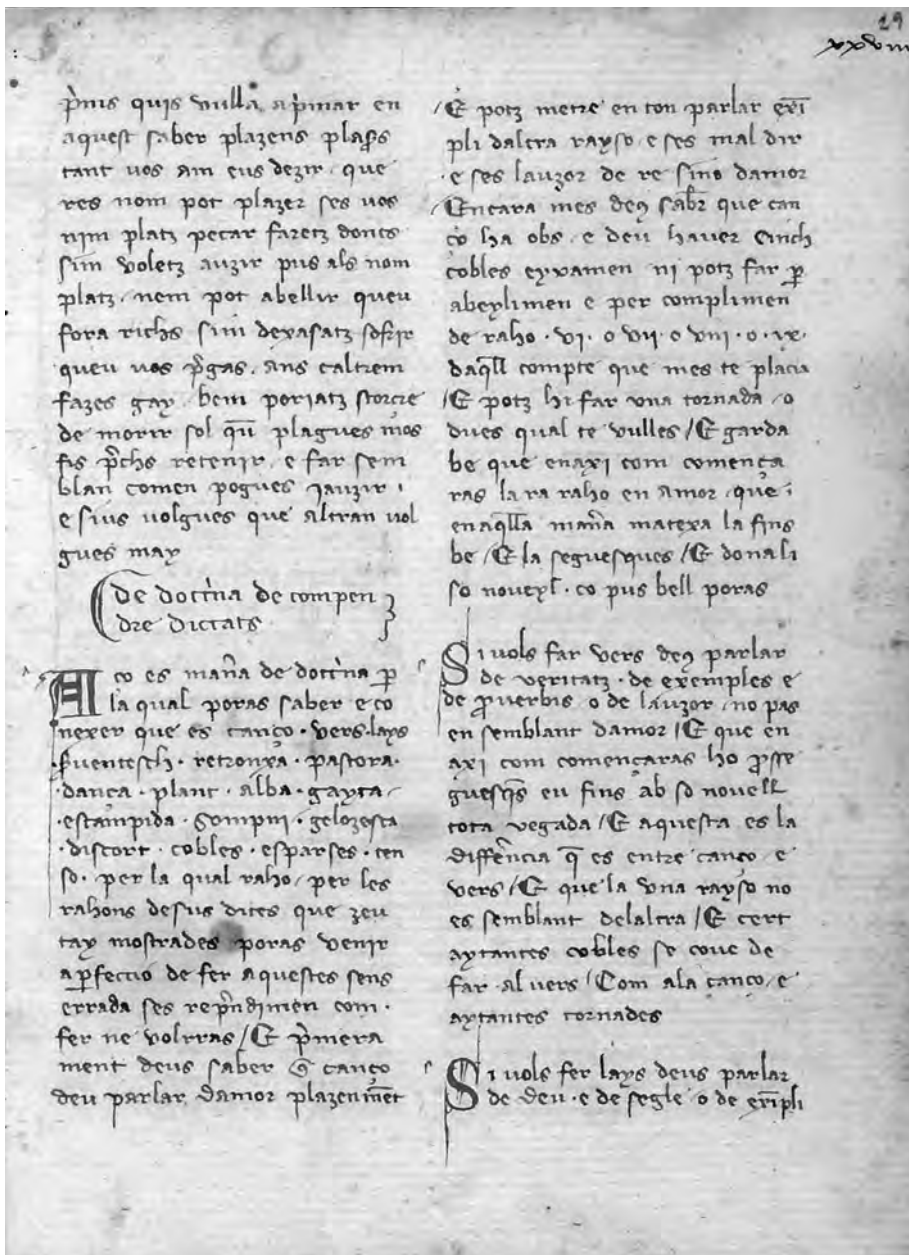 29
xxviii
p̃nis quis vulla ap̃mar en
aquest saber plazens plasẽs
tant vos am eus dezir · que
res nom pot plazer ses vos
nim platz pecar faretz doncs
sim voletz auzir pus als nom
platz · nem pot abellir queu
fora richs sim dexasatz sofrir
queu vos p̃gas · ans caltrem
fazes gay · bem poriatz storcre
de morir sol qũ plagues mos
fis p̃chs retenir · e far sem
blan comen pogues iauzir ·
e sius volgues que altran vol
gues may
de doct̃na de compen
dre dictats
Aço es mañа de doct̃na ꝑ
la qual poras saber e co
nexer que es canço · vers · lays
· s̃uentesch · retronxa · pastora ·
· dança · plant · alba · gayta /
· estampida · sompni · gelozesca
· discort · cobles · esparses · ten
so · per la qual raho / per les
rahons desus dites que zeu
tay mostrades poras venir
a ꝑfectio de fer aquestes sens
errada ses rep̃ndimen com ·
fer ne volrras / E p̃mera
ment deus saber q̃ canço
deu parlar damor plazenm̃et
/ E potz metre en ton parlar exẽ
pli daltra rayso e ses mal dir
· e ses lauzor de re sino damor
/ Encara mes deꝰ sab̃r que can
ço ha obs · e deu hauer cinch
cobles eyxamen ni potz far ꝑ
abeylimen e per complimen
de raho · vi · o vii · o viii · o · ix ·
daq̃ll compte que mes te placia
/ E potz hi far vna tornada · o
dues qual te vulles / E garda
be que enaxi com comença
ras la ra raho en amor · que ·
enaq̃lla mañа matexa la fins
be / E la seguesques / E dona li
so noveyl · co pus bell poras
Si vols far vers deꝰ parlar
de veritatz · de exemples e
de ꝓverbis o de lauzor · no pas
en semblant damor / E que en
axi com començaras ho ꝓsse
guesq̃s eu fins ab so novell
tota vegada / E aquesta es la
diffẽncia q̃ es entre canço · e
vers / E que la vna rayso no
es semblant delaltra / E cert
aytantes cobles se cove de
far · al vers / Com ala canço · e
aytantes tornades
Si vols fer lays deus parlar
de deu · e de segle · o de exẽpli